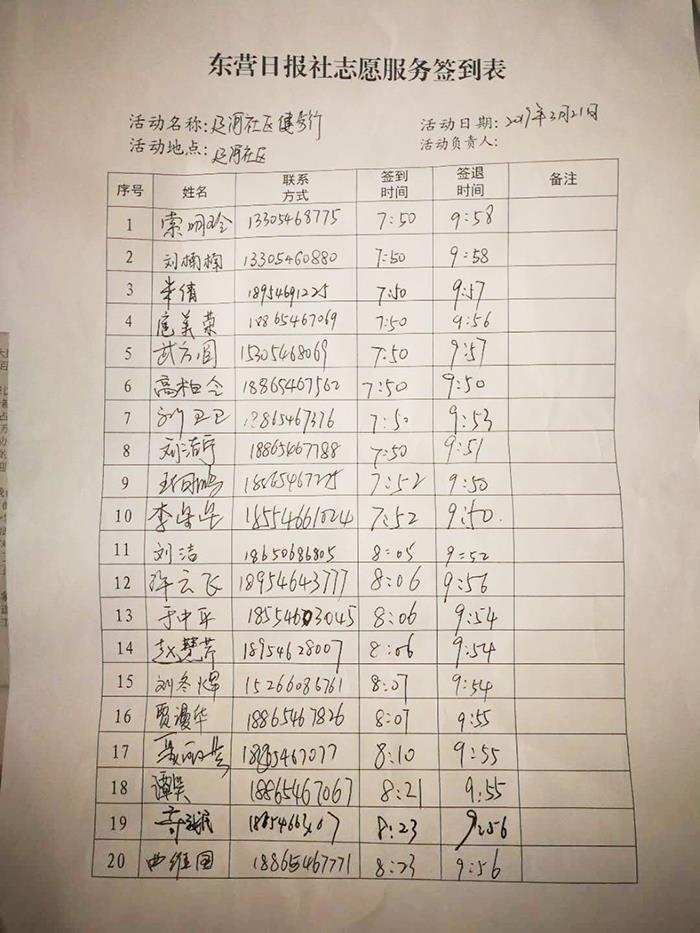 东营日报社志愿服务签到表
活动名称: 辽河社区健步行 活动日期: 2019年3月21日
活动地点: 辽河社区 活动负责人:
序号 姓名 联系方式 签到时间 签退时间 备注
1 索明玲 13305468775 7:50 9:58
2 刘楠楠 13305460880 7:50 9:58
3 朱倩 18954691225 7:50 9:57
4 扈美荣 18865467069 7:50 9:56
5 武方圆 15305468069 7:50 9:57
6 高柏令 18865467562 7:50 9:50
7 刘卫卫 18865467376 7:50 9:53
8 刘洁宇 18865467788 7:50 9:51
9 7:52 9:50
10 18554661024 7:52 9:50
11 刘洁 18650686805 8:05 9:52
12 许云飞 18954643777 8:06 9:56
13 于中平 18554603045 8:06 9:54
14 赵慧芹 18954628007 8:06 9:54
15 刘冬辉 15266086761 8:07 9:54
16 贾漫华 18865467826 8:07 9:55
17 18865467077 8:10 9:55
18 谭昊 18865467067 8:21 9:55
19 8:23 9:56
20 曲维国 18865467771 8:23 9:56